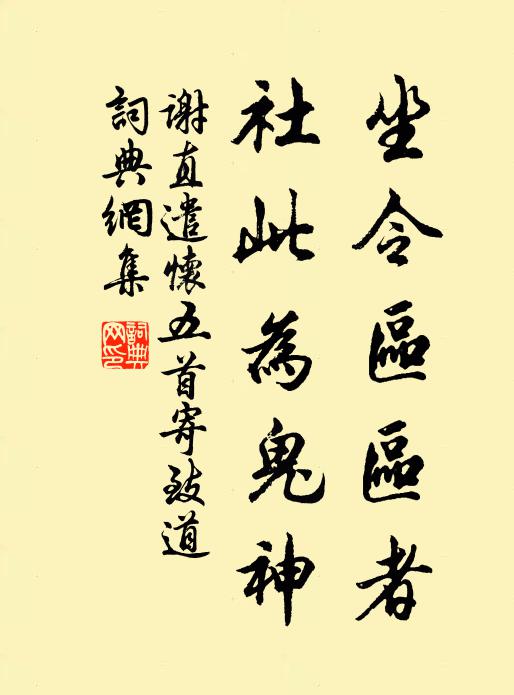 坐令區區者
社此為鬼神
谢直遣懷五首寄致道
詞典網集
詞典網印